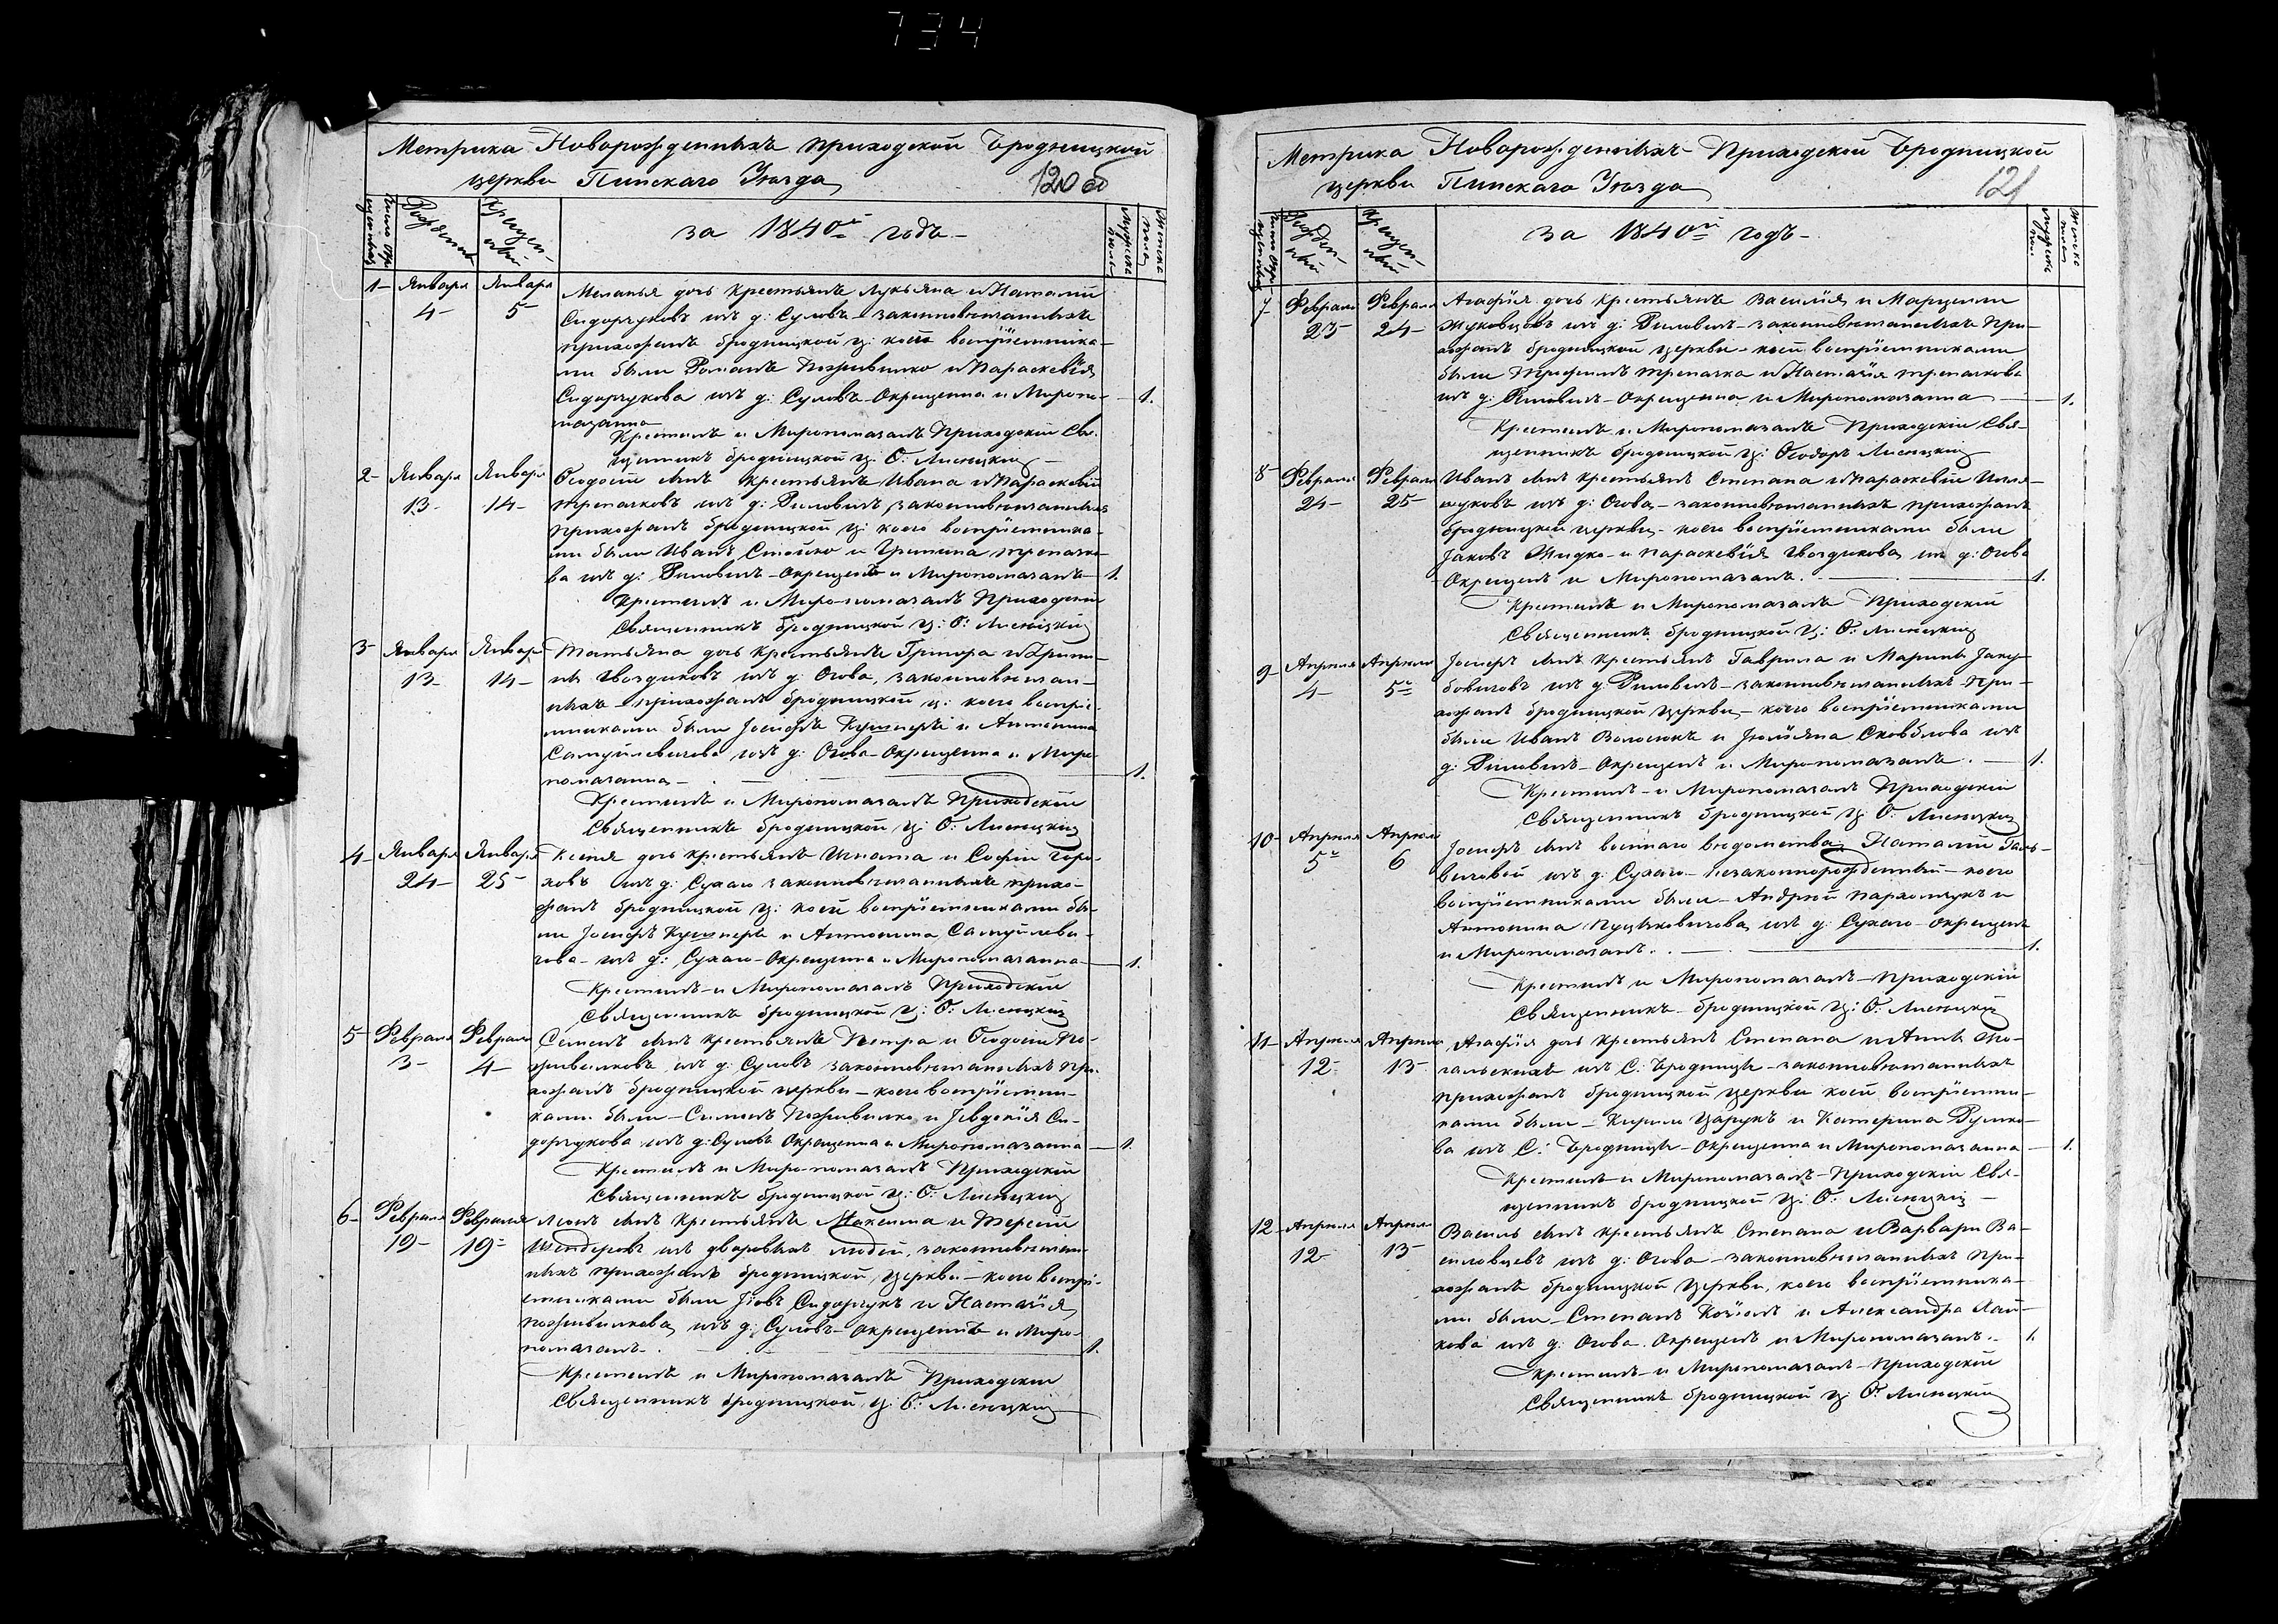 734
Метрика Новорожденныхъ приходской Бродницкой
церкви Пинскаго Уѣзда
120 об
Рожденія
Крещенія
за 1840й годъ
1 Января 4 Января 5
Меланья дочь Крестьянъ Лукьяна и Наталіи
Сидорчуковъ изъ д: Суловъ законновѣнчанныхъ
прихожанъ бродницкой ц: коей воспріемника-
ми были Романъ Поживилко и Параскевія
Сидорчукова изъ д: Суловъ Окрещенна и Миропо- 1.
мазанна
Крестилъ и Миропомазалъ Приходскій Свя-
щенникъ бродницкой ц: Ѳ: Лисицкій
2 Января 13 Января 14
Ѳеодосій сынъ Крестьянъ Ивана и Параскевіи
трепачковъ изъ д: законновѣнчанныхъ
прихожанъ бродницкой ц: коего воспріемника-
ми были Иванъ Стойко и трепачко-
ва изъ д: Окрещенъ и Миропомазанъ 1.
Крестилъ и Миропомазалъ Приходскій
Священникъ бродницкой ц: Ѳ: Лисицкій
3 Января 13 Января 14
Татьяна дочь Крестьянъ Григора и Ирини-
ны Гвоздиковъ изъ д: Огова, законновѣнчан-
ныхъ прихожанъ бродницкой ц: коего воспріе-
мниками были Іосифъ Кушнеръ и Антонина
Самуйлевичева изъ д: Огова Окрещенна и Миро-
помазанна 1.
Крестилъ и Миропомазалъ Приходскій
Священникъ бродницкой ц: Ѳ: Лисицкій
4 Января 24 Января 25
Ксенія дочь крестьянъ Игната и Софіи Горо-
ховъ изъ д: Сухаго законновѣнчанныхъ прихо-
жанъ бродницкой ц: коей воспріемниками бы-
ли Іосифъ Кушнеръ и Антонина Самуйлеви-
чева изъ д: Сухаго Окрещенна и Миропомазанна 1.
Крестилъ и Миропомазалъ Приходскій
Священникъ бродницкой ц: Ѳ: Лисицкій
5 Февраля 3 Февраля 4
Семенъ сынъ крестьянъ Петра и Ѳеодосіи По-
живилковъ изъ д: Суловъ законновѣнчанныхъ при-
хожанъ бродницкой церкви коего воспріемни-
ками были Симонъ Поживилко и Іевдокія Си-
дорчукова изъ д: Суловъ Окрещенна и Миропомазанна 1.
Крестилъ и Миропомазалъ Приходскій
Священникъ бродницкой ц: Ѳ: Лисицкій
6 Февраля 19 Февраля 19
Леонъ сынъ крестьянъ Максима и Тересіи
изъ дворовыхъ людей, законновѣнчан-
ныхъ прихожанъ бродницкой церкви коего воспрі-
емниками были Іовъ Сидорчукъ и Настазія
Поживилкова изъ д: Суловъ окрещенъ и Миро-
помазанъ. 1.
Крестилъ и Миропомазалъ Приходскій
Священникъ бродницкой ц: Ѳ: Лисицкій
Метрика Новорожденныхъ Приходской Бродницкой
церкви Пинскаго Уѣзда
121
Рожденій
Крещеній
за 1840й годъ
7 Февраля 23 Февраля 24
Агафія дочь крестьянъ Василія и Марцелли
Жуковцовъ изъ д: законновѣнчанныхъ при-
хожанъ бродницкой церкви коей воспріемниками
были Трофимъ трепачка и Настазія трепачкова
изъ д: Окрещенна и Миропомазанна 1.
Крестилъ и Миропомазалъ Приходскій Свя-
щенникъ бродницкой ц: Ѳеодоръ Лисицкій
8 Февраля 24 Февраля 25
Иванъ сынъ крестьянъ Степана и Параскевіи
изъ д: Огова законновѣнчанныхъ прихожанъ
бродницкой церкви коего воспріемниками были
Іаковъ Жидко и Параскевія Гвоздикова изъ д: Огова
Окрещенъ и Миропомазанъ. 1.
Крестилъ и Миропомазалъ Приходскій
Священникъ бродницкой ц: Ѳ: Лисицкій
9 Апрѣля 4 Апрѣля 5
Іосифъ сынъ крестьянъ Гаврила и Марины Яку-
бовичовъ изъ д: законновѣнчанныхъ при-
хожанъ бродницкой церкви коего воспріемниками
были Иванъ Волосюкъ и Іюліяна изъ
д: Окрещенъ и Миропомазанъ. 1.
Крестилъ и Миропомазалъ Приходскій
Священникъ бродницкой ц: Ѳ: Лисицкій
10 Апрѣля 5 Апрѣля 6
Іосифъ сынъ военнаго вѣдомства Наталіи Гань-
бичовой изъ д: Сухаго незаконнорожденный коего
воспріемниками были Андрей Пархомчукъ и
Антонина изъ д: Сухаго окрещенъ
и Миропомазанъ. 1.
Крестилъ и Миропомазалъ Приходскій
Священникъ бродницкой ц: Ѳ: Лисицкій
11 Апрѣля 12 Апрѣля 13
Агафія дочь крестьянъ Степана и Анны Мо-
гальскихъ изъ С: Бродницы законновѣнчанныхъ
прихожанъ бродницкой церкви коей воспріемни-
ками были Кирила Царукъ и Катерина
изъ С: Бродницы Окрещенна и Миропомазанна 1.
Крестилъ и Миропомазалъ Приходскій Свя-
щенникъ бродницкой ц: Ѳ: Лисицкій
12 Апрѣля 12 Апрѣля 13
Василь сынъ крестьянъ Степана и Варвари Ва-
силовцевъ изъ д: Огова законновѣнчанныхъ при-
хожанъ бродницкой церкви, коего воспріемника-
ми были Степанъ Козіолъ и Александра
изъ д: Огова. Окрещенъ и Миропомазанъ. 1.
Крестилъ и Миропомазалъ Приходскій
Священникъ бродницкой ц: Ѳ: Лисицкій